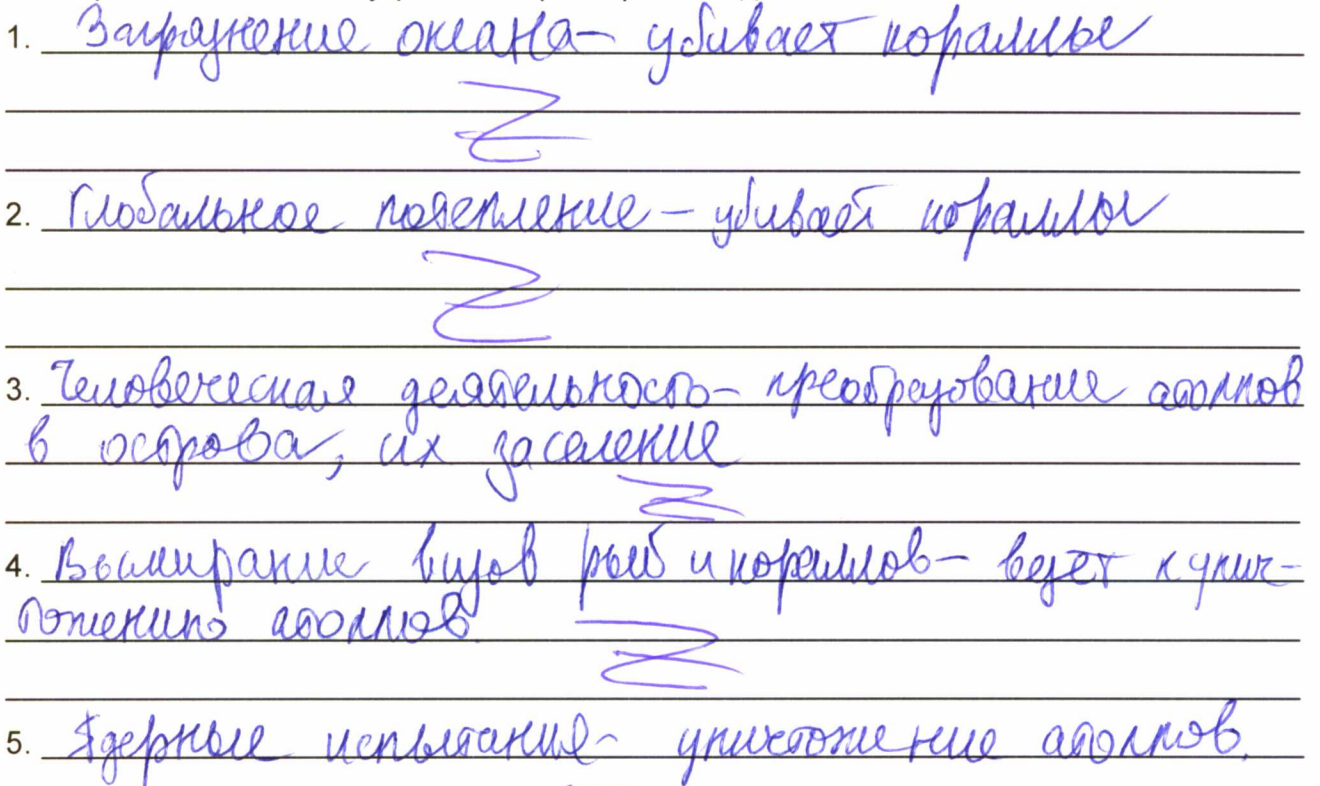 1. Загрязнение океана – убивает кораллы
2. Глобальное потепление – убивает кораллы
3. Человеческая деятельность – преобразование атоллов
в острова, их заселение
4. Вымирание видов рыб и кораллов – ведет к унич-
тожению атоллов
5. Ядерные испытания – уничтожение атоллов.